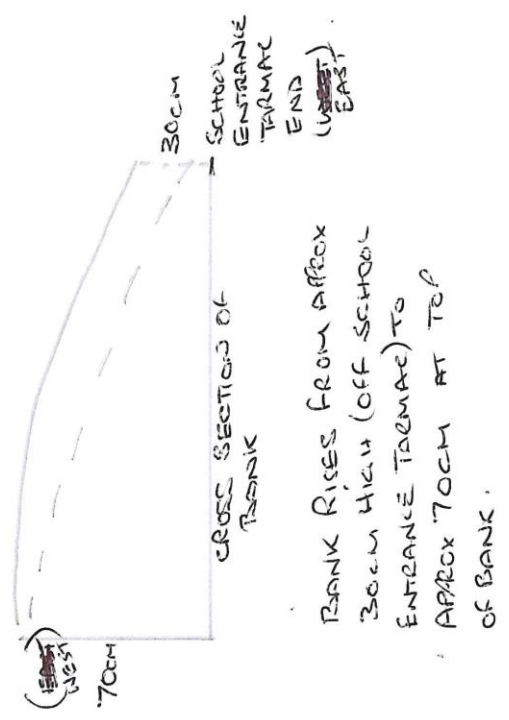 (WEST
70CM
30CM
SCHOOL
ENTRANCE
TARMAC
END
EAST)
CROSS SECTION OF
BANK
BANK RISES FROM APPROX
30CM HIGH (OFF SCHOOL
ENTRANCE TARMAC) TO
APPROX 70CM AT TOP
OF BANK.